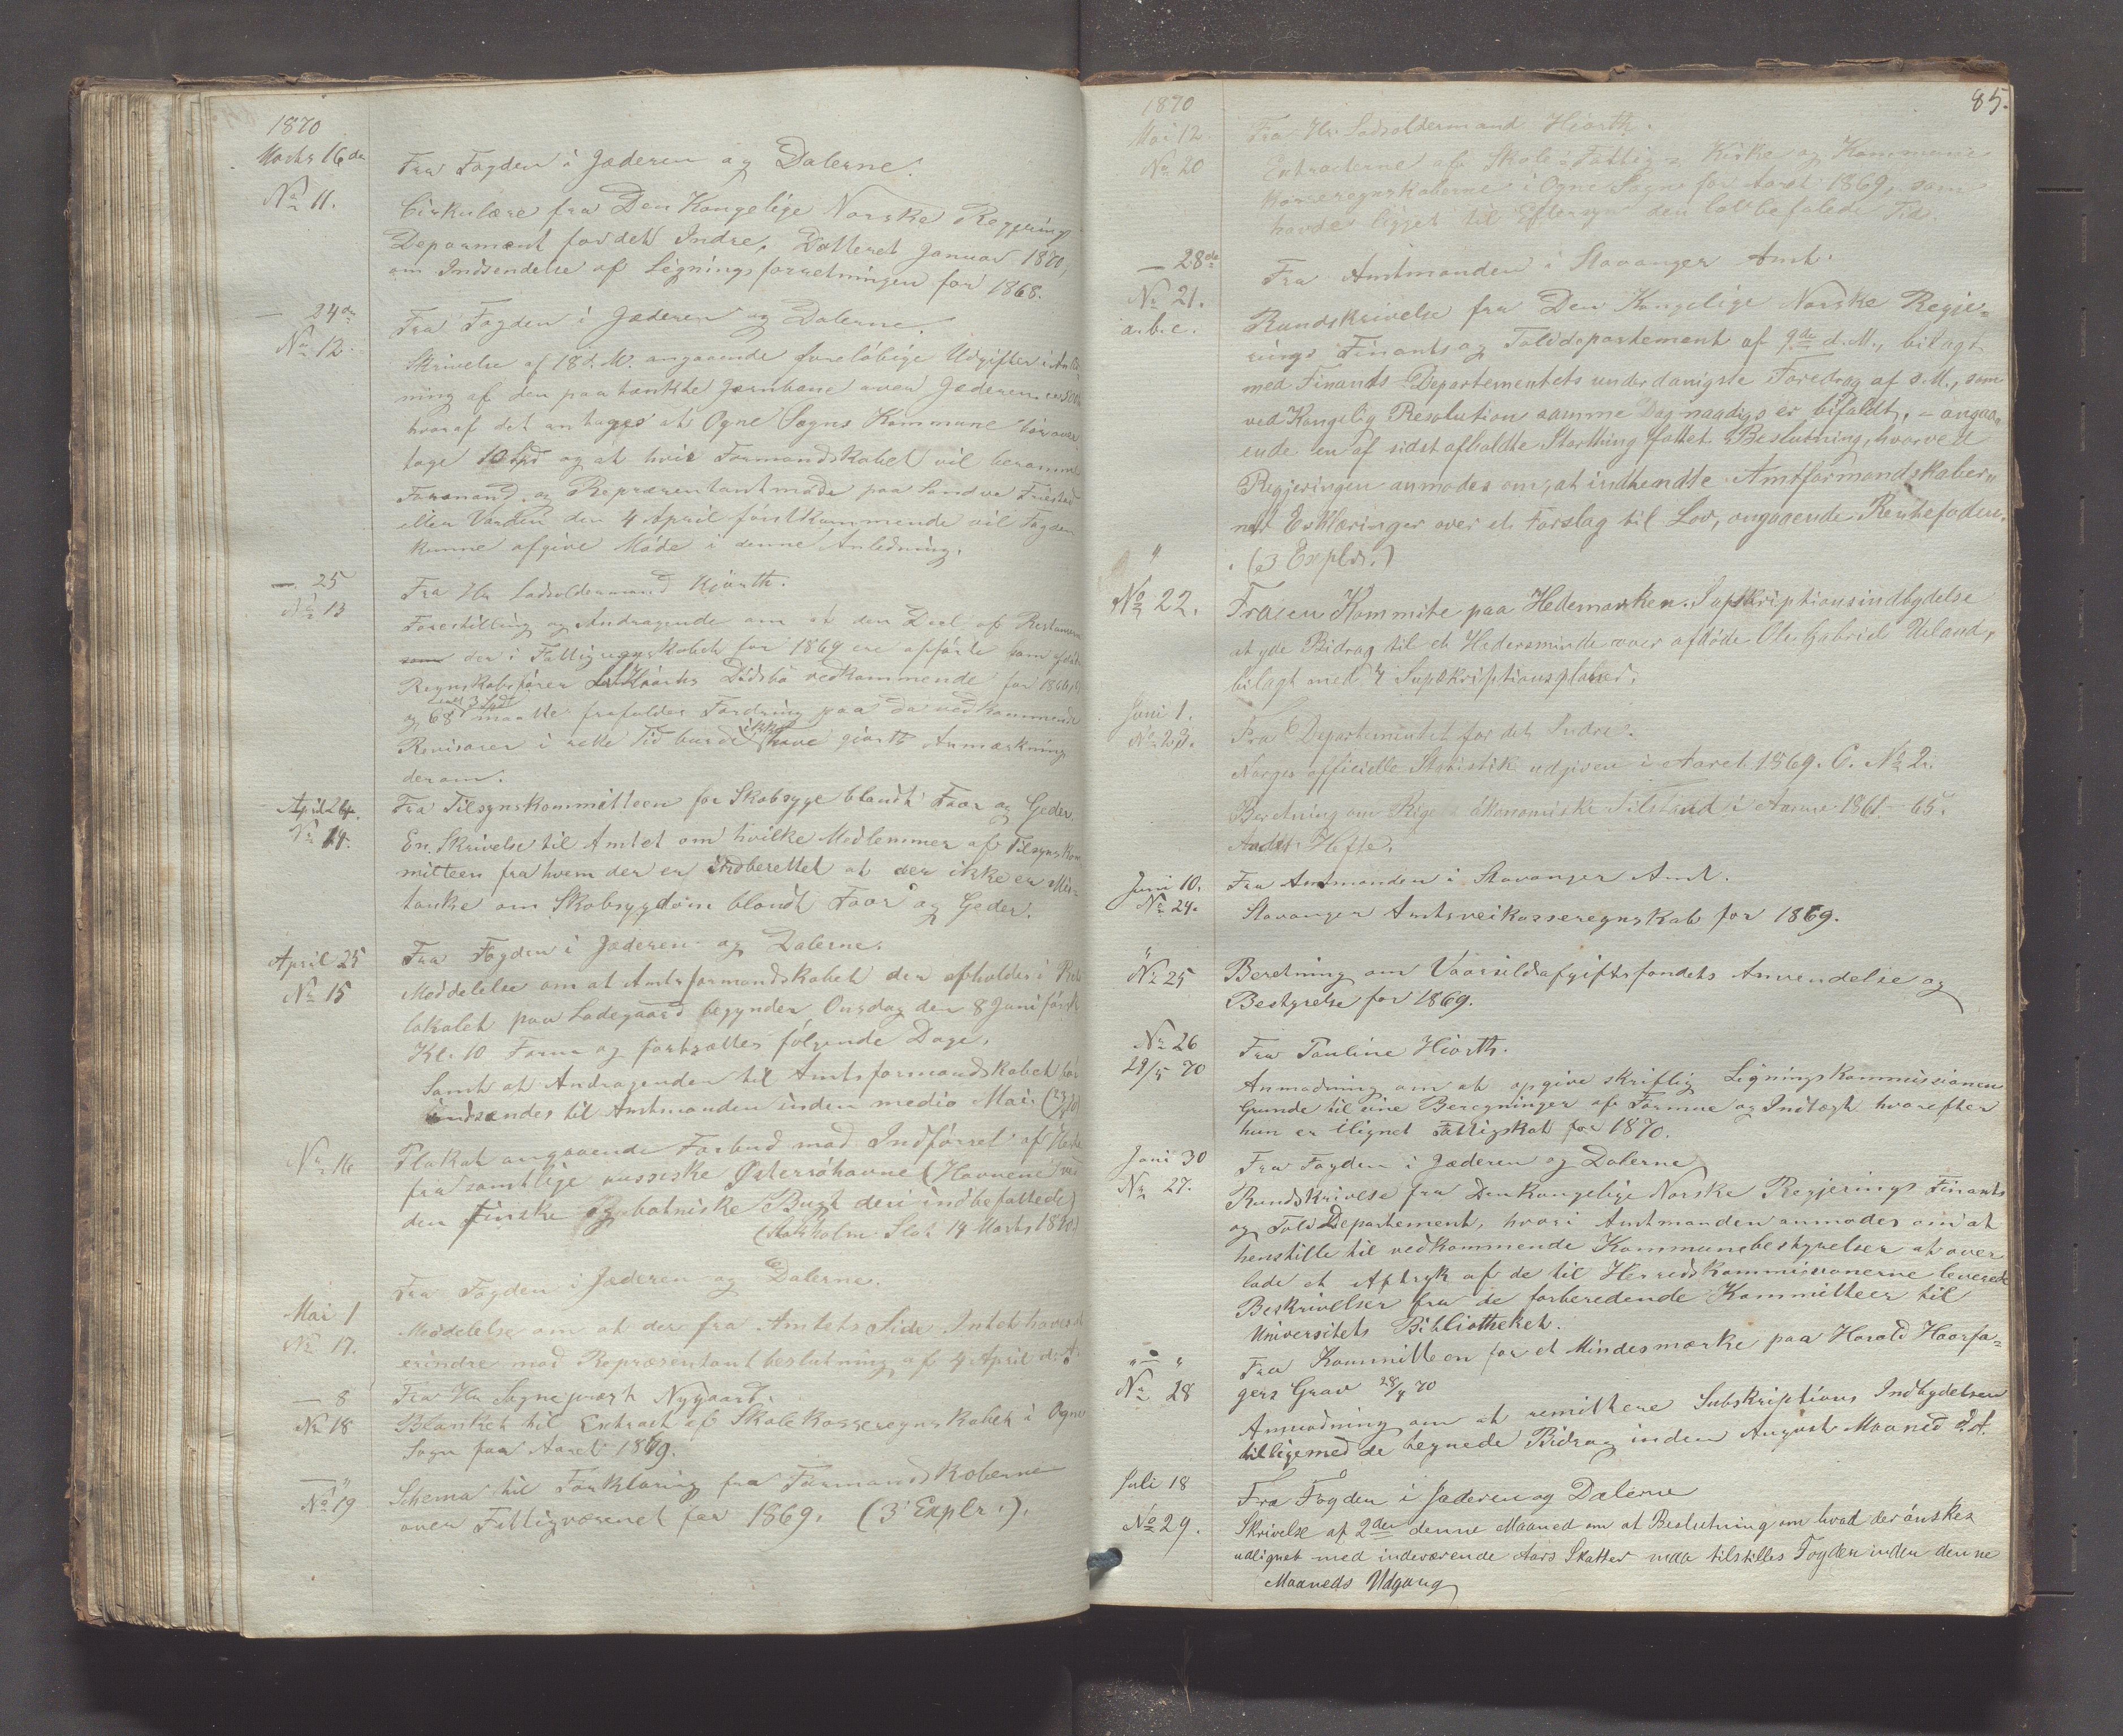 1870
Marts 16de
Fra Fogden i Jæderen og Dalerne.
No 11.
Cirkulære fra Den Kongelige Norske Regjerings
Deparment for det Indre, Datteret Januar 1870,
om Indsendelse af Ligningsforretningen for 1868.
— 24de
Fra Fogden i Jæderen og Dalerne.
No 12.
Skrivelse af 18 d. M. angaaende foreløbige Udgifter i Anled
ning af den paatænkte Jernbane over Jæderen
hvoraf det antages at Ogne Sogns Kommune bør over
tage 10 Spd og at hvis Formandskabet vil beramme
Formand. og Repræsentantmøde paa
eller Varden den 4 April førstkommende vil Fogden
kunne afgive Møde i denne Anledning.
— 25
Fra Hr Ladsoldermand Hiorth.
No 13
Forestilling og Andragende om at den Deel af Restancerne
som der i Fattigregnskabet for 1869 ere opførte som
Regnskabsfører Hiorths Dødsbo vedkommende for 1866,
og 68 maatte frafaldes Fordring paa da vedkommende
Revisorer i rette Tid burde ikke have giorth Anmærkning
derom.
April 24.
Fra Tilsynskommitteen for Skabsyge blandt Faar og Geder.
No 14.
En Skrivelse til Amtet om hvilke Medlemmer af Tilsynskom
mitteen fra hvem der er indberettet at der ikke er Mis-
tanke om Skabsygdom blandt Faar og Geder.
April 25
Fra Fogden i Jæderen og Dalerne.
No 15
Meddelelse om at Amtsformandskabet der afholdes i
lokalet paa Ladegaard begynder Onsdag den 8 Juni førstk
Kl. 10 Form og fortsættes følgende Dage.
Samt at Andragenden til Amtsformandskabet bør
indsendes til Amtmanden inden medio Mai.
No 16
Plakat angaaende Forbud mod Indførsel af
fra samtlige russiske Østersøhavne (Havnene ved
den finske og botniske Bugt deri indbefattede)
(Stokholm Slot 14 Marts 1870)
Fra Fogden i Jæderen og Dalerne.
Mai 1
No 17.
Meddelelse om at der fra Amtets Side Intet haves at
erindre mod Repræsentantbeslutning af 4 April d. A.
— 8
Fra Hr Sognepræst Nygaard.
No 18
Blanket til Extract af Skolekasseregnskabet i Ogne
Sogn for Aaret 1869.
— "
No 19
Schema til Forklaring fra Formandskaberne
over Fattigvæsenet for 1869. (3 Explr.).
85.
1870
Mai 12
Fra Hr. Ladsoldermand Hiorth.
No 20
Extracterne af Skole- Fattig- Kirke og Kommune
kasseregnskaberne i Ogne Sogn for Aaret 1869, som
havde ligget til Eftersyn den lovbefalede Tid.
— 28de
Fra Amtmanden i Stavanger Amt.
No 21.
a.b.c.
Rundskrivelse fra Den Kongelige Norske Regje-
rings Finants og Tolddepartement af 9de d. M., bilagt
med Finands-Departementets underdanigste Foredrag af s. M., som
ved Kongelig Resolution samme Dag naadigs er bifaldt, - angaa-
ende en af sidst afholdte Storthing fattet Beslutning, hvorved
Regjeringen anmodes om, at indhendte Amtformandskaber-
nes Erklæringer over et Forslag til Lov, angaaende Rentefoden.
(3 Explr.)
"
No 22.
Fra en Kommite paa Hedemarken. Supskriptionsindbydelse
at yde Bidrag til et Hædersminde over afdøde Ole Gabriel Ueland,
bilagt med 4 Supskriptionsplakad.
Juni 1.
Fra Departementet for det Indre.
No 23.
Norges officielle Statistik udgiven i Aaret 1869. C. No 2.
Beretning om Rigets økonomiske Tilstand i Aarene 1861-65.
Andet Hefte.
Juni 10.
Fra Amtmanden i Stavanger Amt.
No 24.
Stavanger Amtsveikasseregnskab for 1869.
"
No 25
Beretning om Vaarsildafgiftsfondets Anvendelse og
Bestyrelse for 1869.
No 26
Fra Pauline Hiorth.
29/5 70
Anmodning om at opgive skriftlig Ligningskommissionens
Grunde til sine Beregninger af Formue og Indtægt hvorefter
hun er ilignet Fattigskat for 1870.
Juni 30
Fra Fogden i Jæderen og Dalerne
No 27.
Rundskrivelse fra Den kongelige Norske Regjerings Finants
og Told Departement, hvori Amtmanden anmodes om at
henstille til vedkommende Kommunebestyrelser at over
lade et Aftryk af de til Herredskommissionerne leverede
Beskrivelser fra de forberedende Kommitteer til
Universitets Bibliotheket.
" — "
Fra Kommitteen for et Mindesmærke paa Harald Haarfa-
No 28
gers Grav 28/4 70
Anmodning om at remittere Subskriptions Indbydelsen
tilligemed de tegnede Bidrag inden August Maaned d. A.
Juli 18
Fra Fogden i Jæderen og Dalerne
No 29.
Skrivelse af 2den denne Maaned om at Beslutning om hvad der ønskes
udlignet med indeværende Aars Skatter maa tilstilles Fogden inden denne
Maaneds Udgang